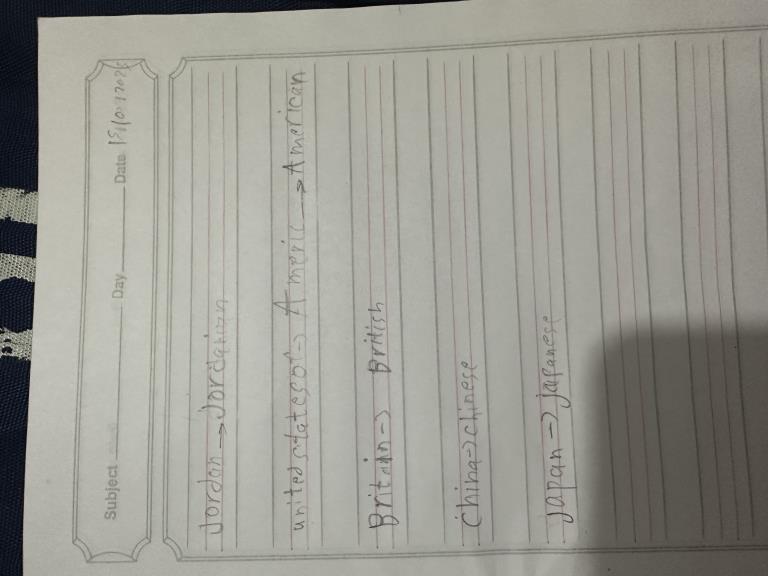 Subject Day Date
Jordan → Jordanian
united states of → Americ → American
Britain → British
china → chinese
Japan → japanese